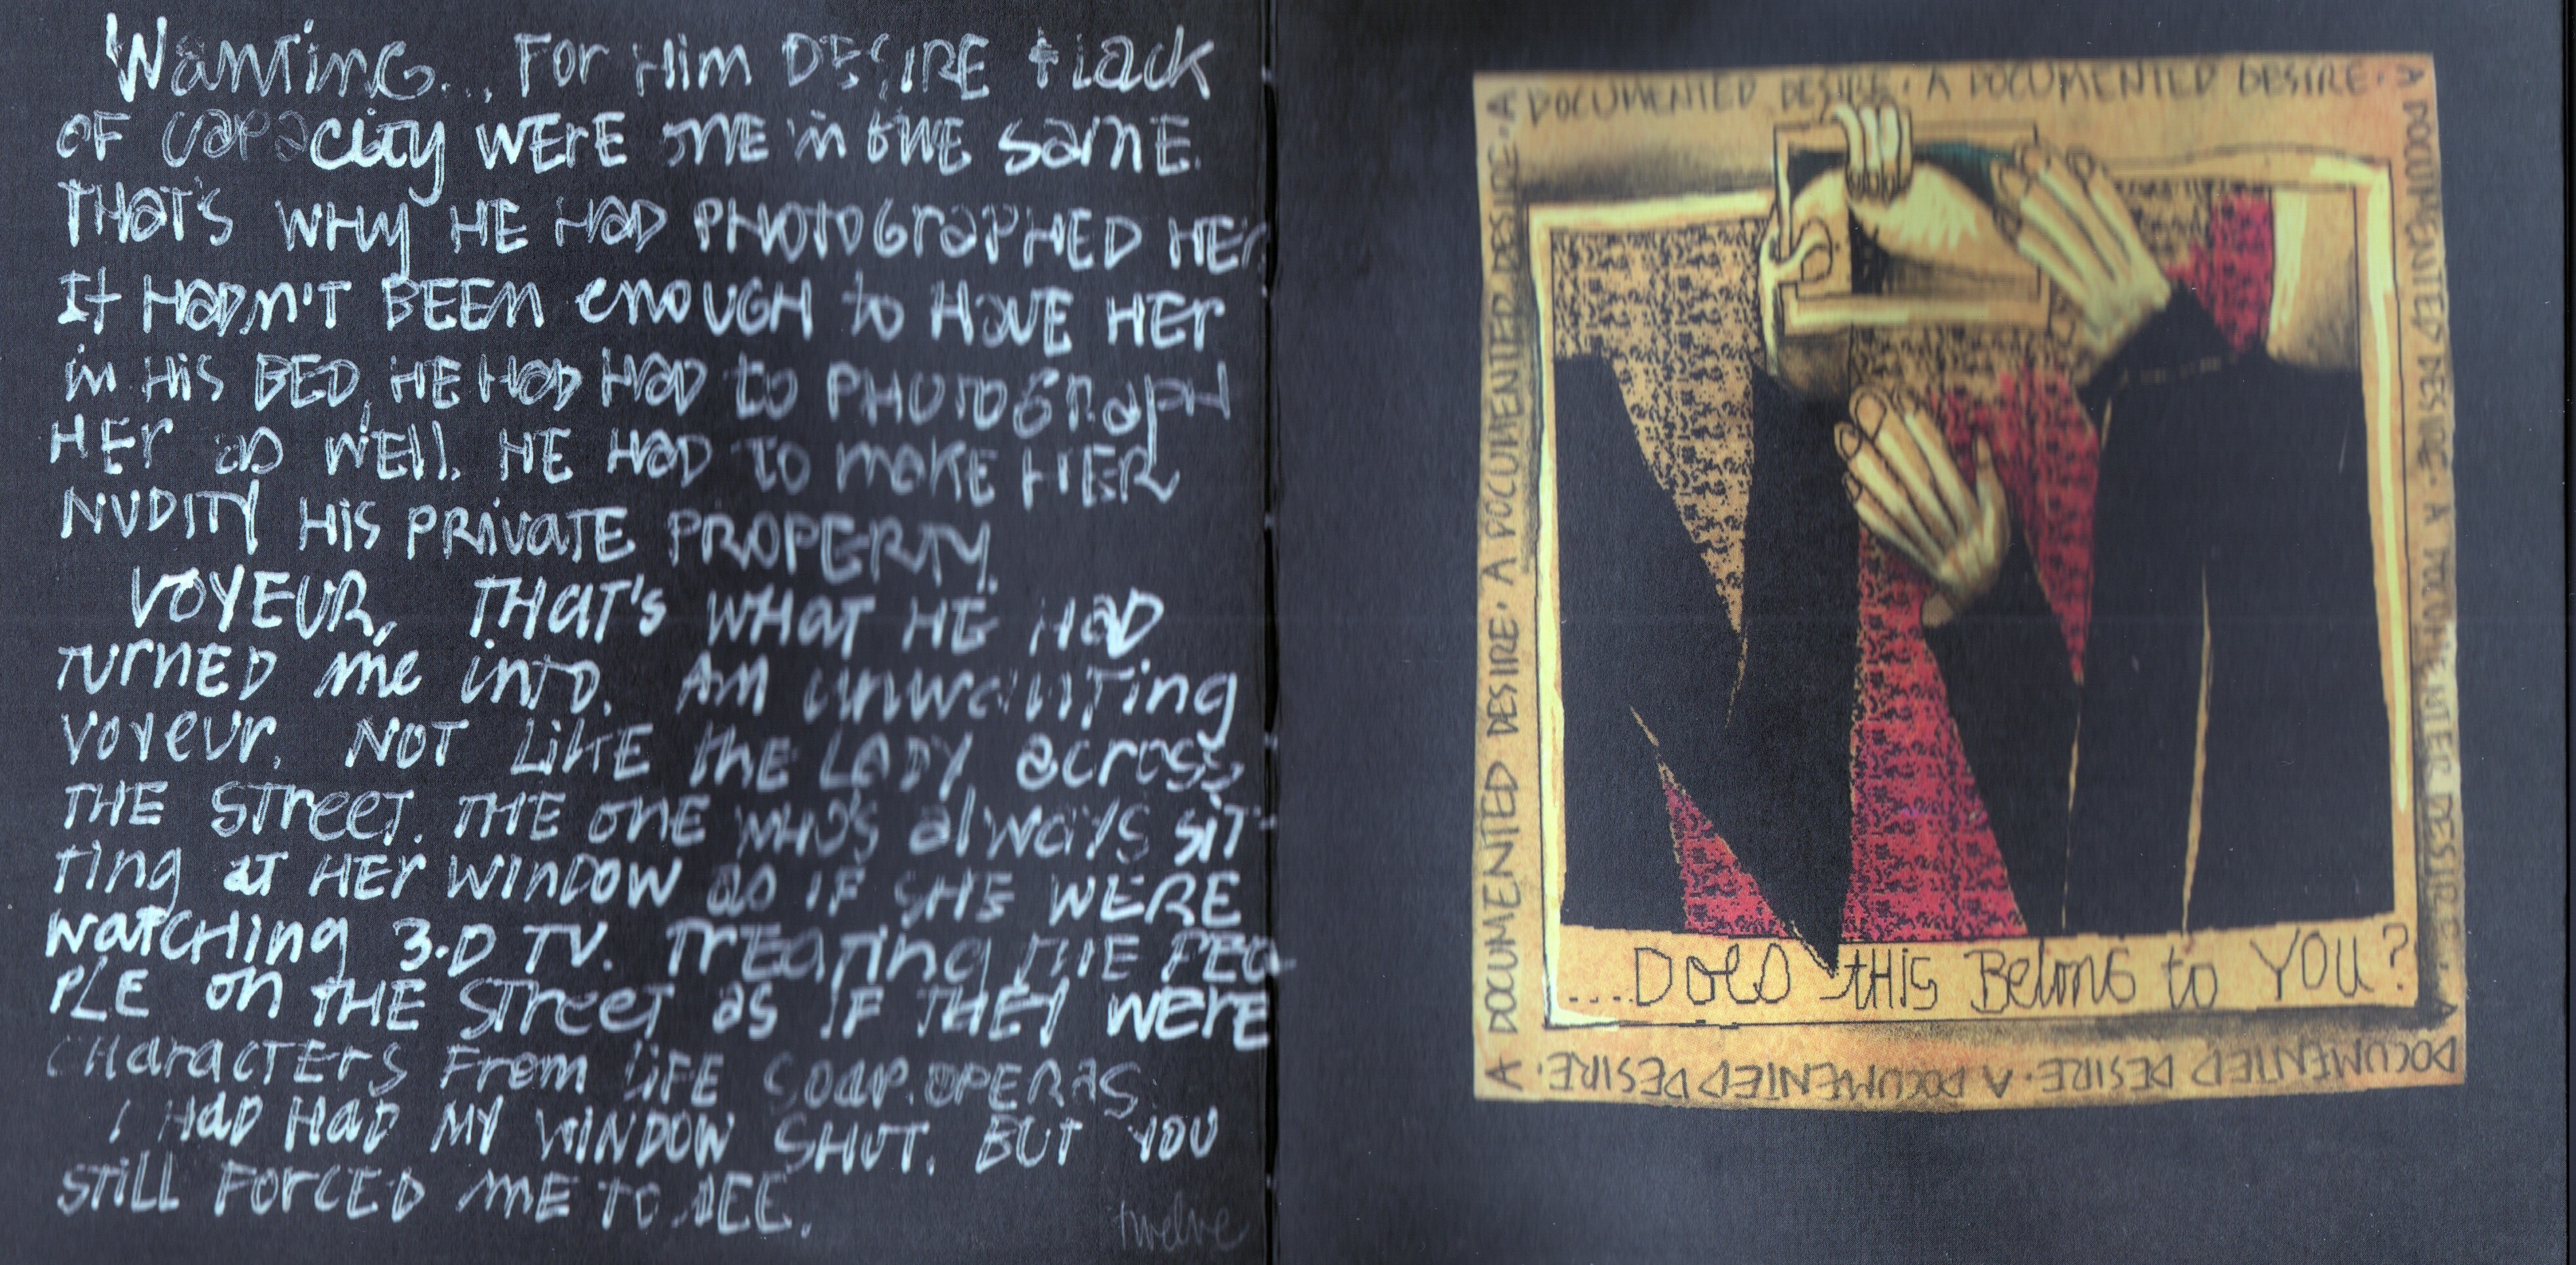 Wanting... For Him DESIRE + Lack
OF capacity WERE ONE in THE same.
THAT'S WHY HE HAD PHOTOGRAPHED HER
It HADN'T BEEN enOUGH to HAVE HER
in His BED, HE HAD HAD to PHOTOGRAPH
HER as WELL. HE HAD TO MAKE HER
NUDITY His PRIVATE PROPERTY.
VOYEUR, THAT'S WHAT HE HAD
TURNED me into. AM unwanting
voyeur. NOT LIKE the LADY across
THE street. THE ONE WHO'S always SIT-
ting at HER WINDOW as IF SHE WERE
watching 3-D TV. Treating THE PEO
PLE on THE Street as IF THEY WERE
CHaracTERS From LIFE SOAP.OPERAS
I HAD HAD MY WINDOW SHUT. BUT YOU
STILL FORCED ME TO SEE.
twelve
A DOCUMENTED DESIRE. A DOCUMENTED DESIRE.
A DOCUMENTED DESIRE. A DOCUMENTED DESIRE.
....Does tHis Belong to YOU?
A DOCUMENTED DESIRE. A DOCUMENTED DESIRE. A
DOCUMENTED DESIRE. A DOCUMENTED DESIRE.